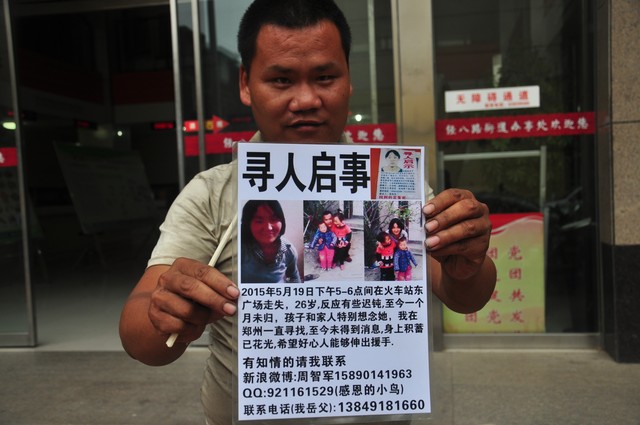 无障碍通道
经八路街道办事处欢迎您
寻人启事
寻人
启示
2015年5月19日下午5-6点间在火车站东
广场走失，26岁,反应有些迟钝,至今一个
月未归，孩子和家人特别想念她，我在
郑州一直寻找,至今未得到消息,身上积蓄
已花光,希望好心人能够伸出援手.
有知情的请我联系
新浪微博:周智军15890141963
QQ:921161529(感恩的小鸟)
联系电话(我岳父):13849181660